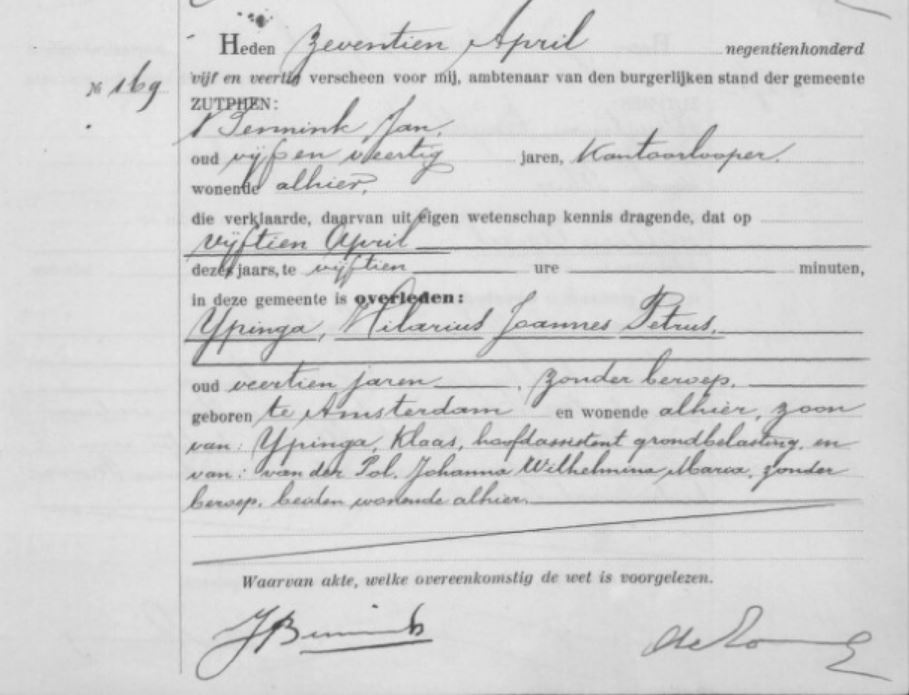 Heden Zeventien April negentienhonderd
№ 169 vijf en veertig verscheen voor mij, ambtenaar van den burgerlijken stand der gemeente
ZUTPHEN:
Bennink, Jan,
oud vijf en veertig jaren, Kantoorlooper.
wonende alhier,
die verklaarde, daarvan uit eigen wetenschap kennis dragende, dat op
vijftien April
dezes jaars, te vijftien ure minuten,
in deze gemeente is overleden:
Ypinga, Hilarius Joannes Petrus,
oud veertien jaren, zonder beroep,
geboren te Amsterdam en wonende alhier, zoon
van: Ypinga, Klaas, hoofdassistent grondbelasting, en
van: van der Pol, Johanna Wilhelmina Maria, zonder
beroep, beiden wonende alhier.
Waarvan akte, welke overeenkomstig de wet is voorgelezen.
JBennink